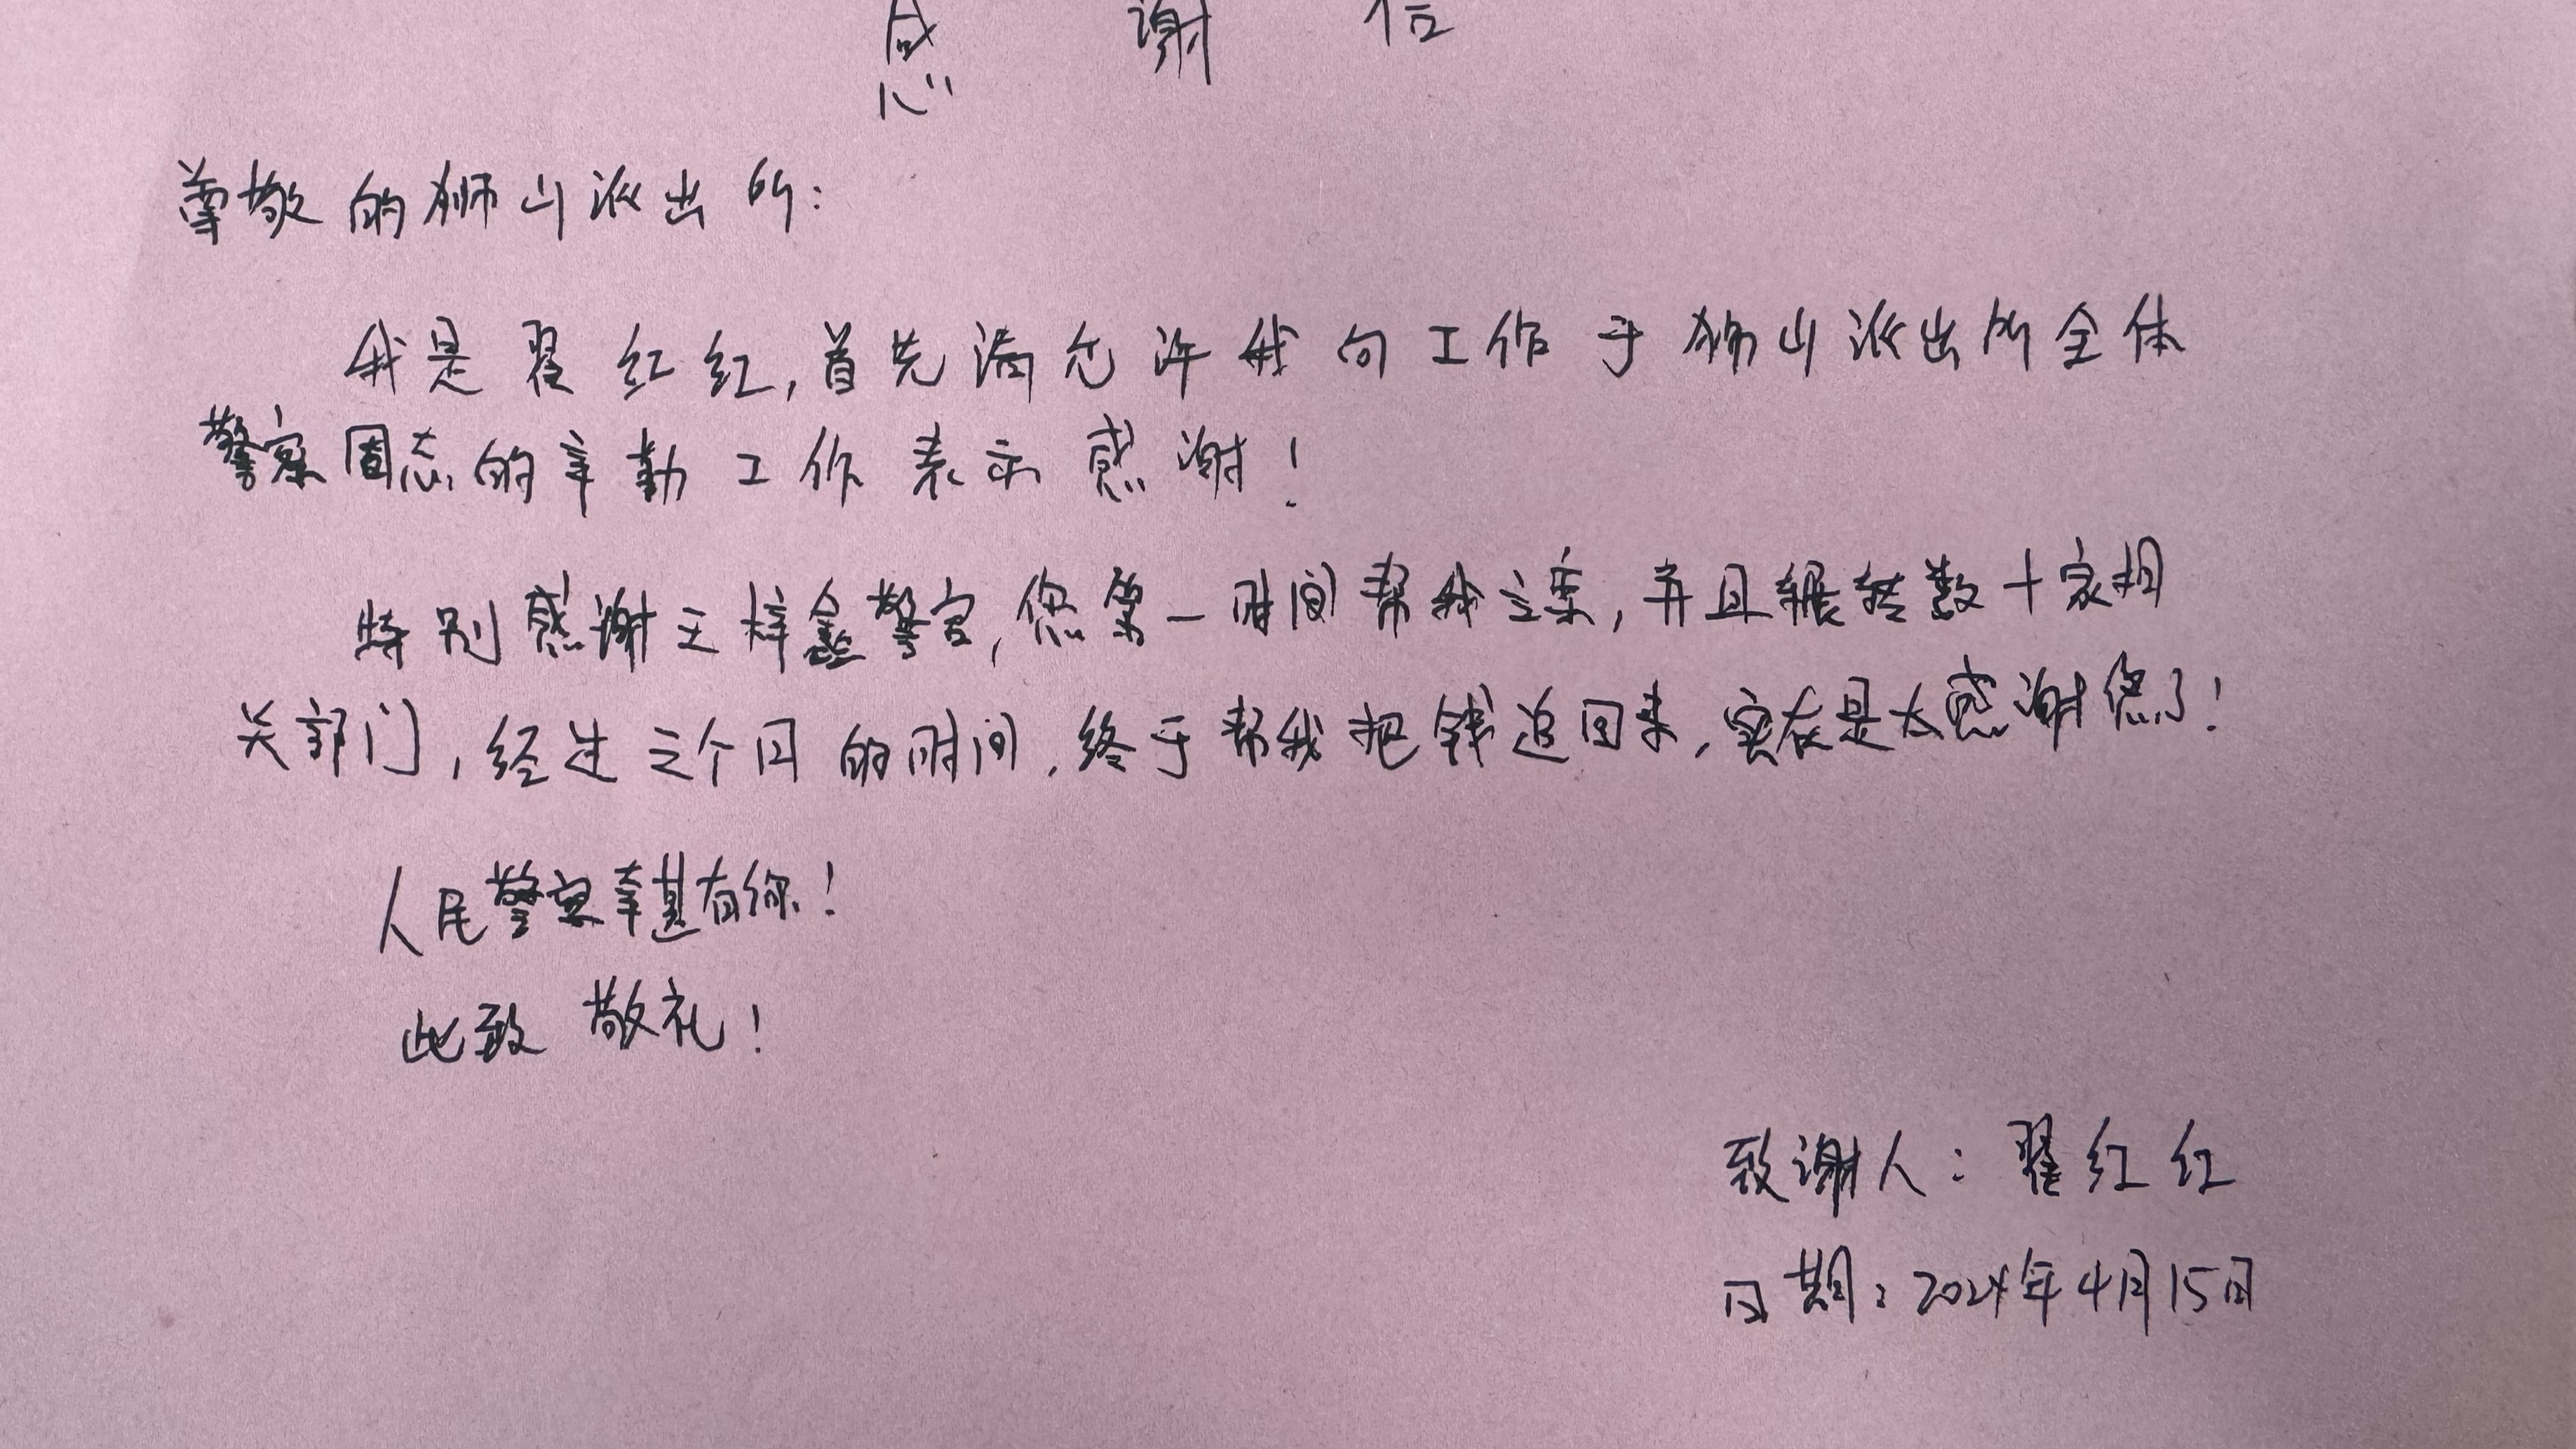 感谢信
尊敬的狮山派出所:
我是翟红红,首先请允许我向工作于狮山派出所全体
警察同志的辛勤工作表示感谢!
特别感谢王梓鑫警官,您第一时间帮我立案,并且辗转数十家相
关部门,经过三个月的时间,终于帮我把钱追回来,实在是太感谢您了!
人民警察幸甚有你!
此致 敬礼!
致谢人:翟红红
日期:2024年4月15日